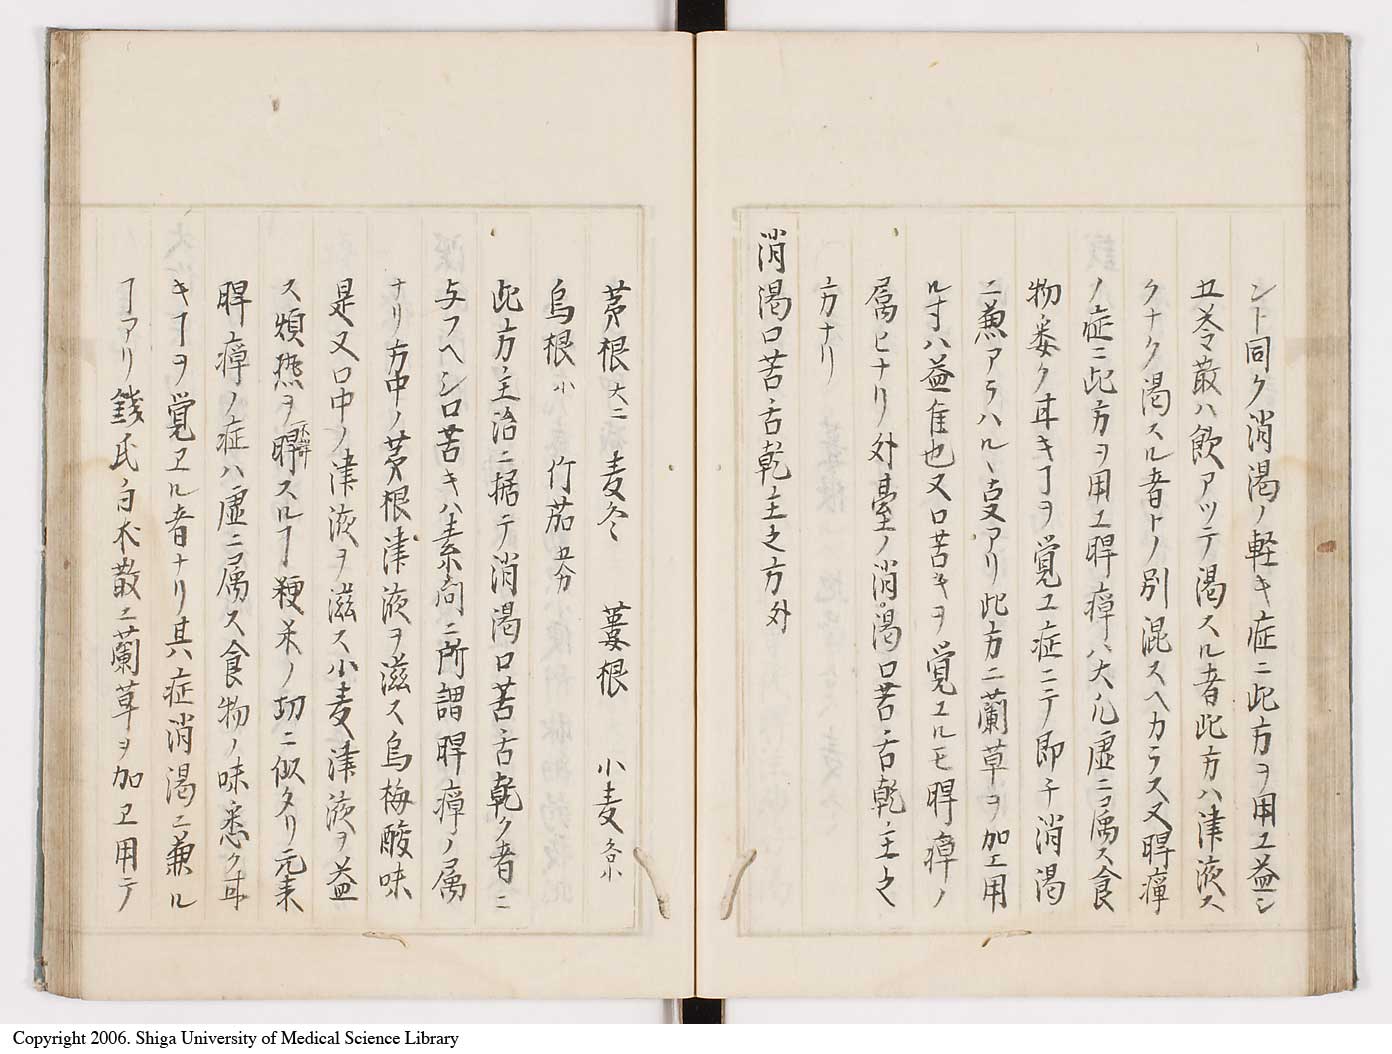 シト同ク消渇ノ軽キ症ニ此方ヲ用ユ益シ
五苓散ハ飲アツテ渇スル者此方ハ津液ス
クナク渇スル者トノ別混スヘカラス又脾癉
ノ症ニ此方ヲ用ユ脾癉ハ大凡虚ニ属ス食
物悉ク甘キヿヲ覚ユ症ニテ即チ消渇
ニ兼アラハルヽ叓アリ此方ニ蘭草ヲ加エ用
ル寸ハ益佳也又口苦キヲ覚エルモ脾癉ノ
属ヒナリ外臺ノ消渇口苦舌乾主之
方ナリ
消渇口苦舌乾主之方 外
茅根 大二 麦冬 蔞根 小麦 各小
烏根 小 竹茹 五分
此方主治ニ据テ消渇口苦舌乾ク者ニ
与フヘシ口苦キハ素問ニ所謂脾癉ノ属
ナリ方中ノ茅根津液ヲ滋ス烏梅酸味
是又口中ノ津液ヲ滋ス小麦津液ヲ益
ス煩熱ヲ解スルヿ粳米ノ功ニ似タリ元来
脾癉ノ症ハ虚ニ属ス食物ノ味悉ク甘
キヿヲ覚ヱル者ナリ其症消渇ニ兼ル
ヿアリ銭氏白朮散ニ蘭草ヲ加ヱ用テ
Copyright 2006. Shiga University of Medical Science Library